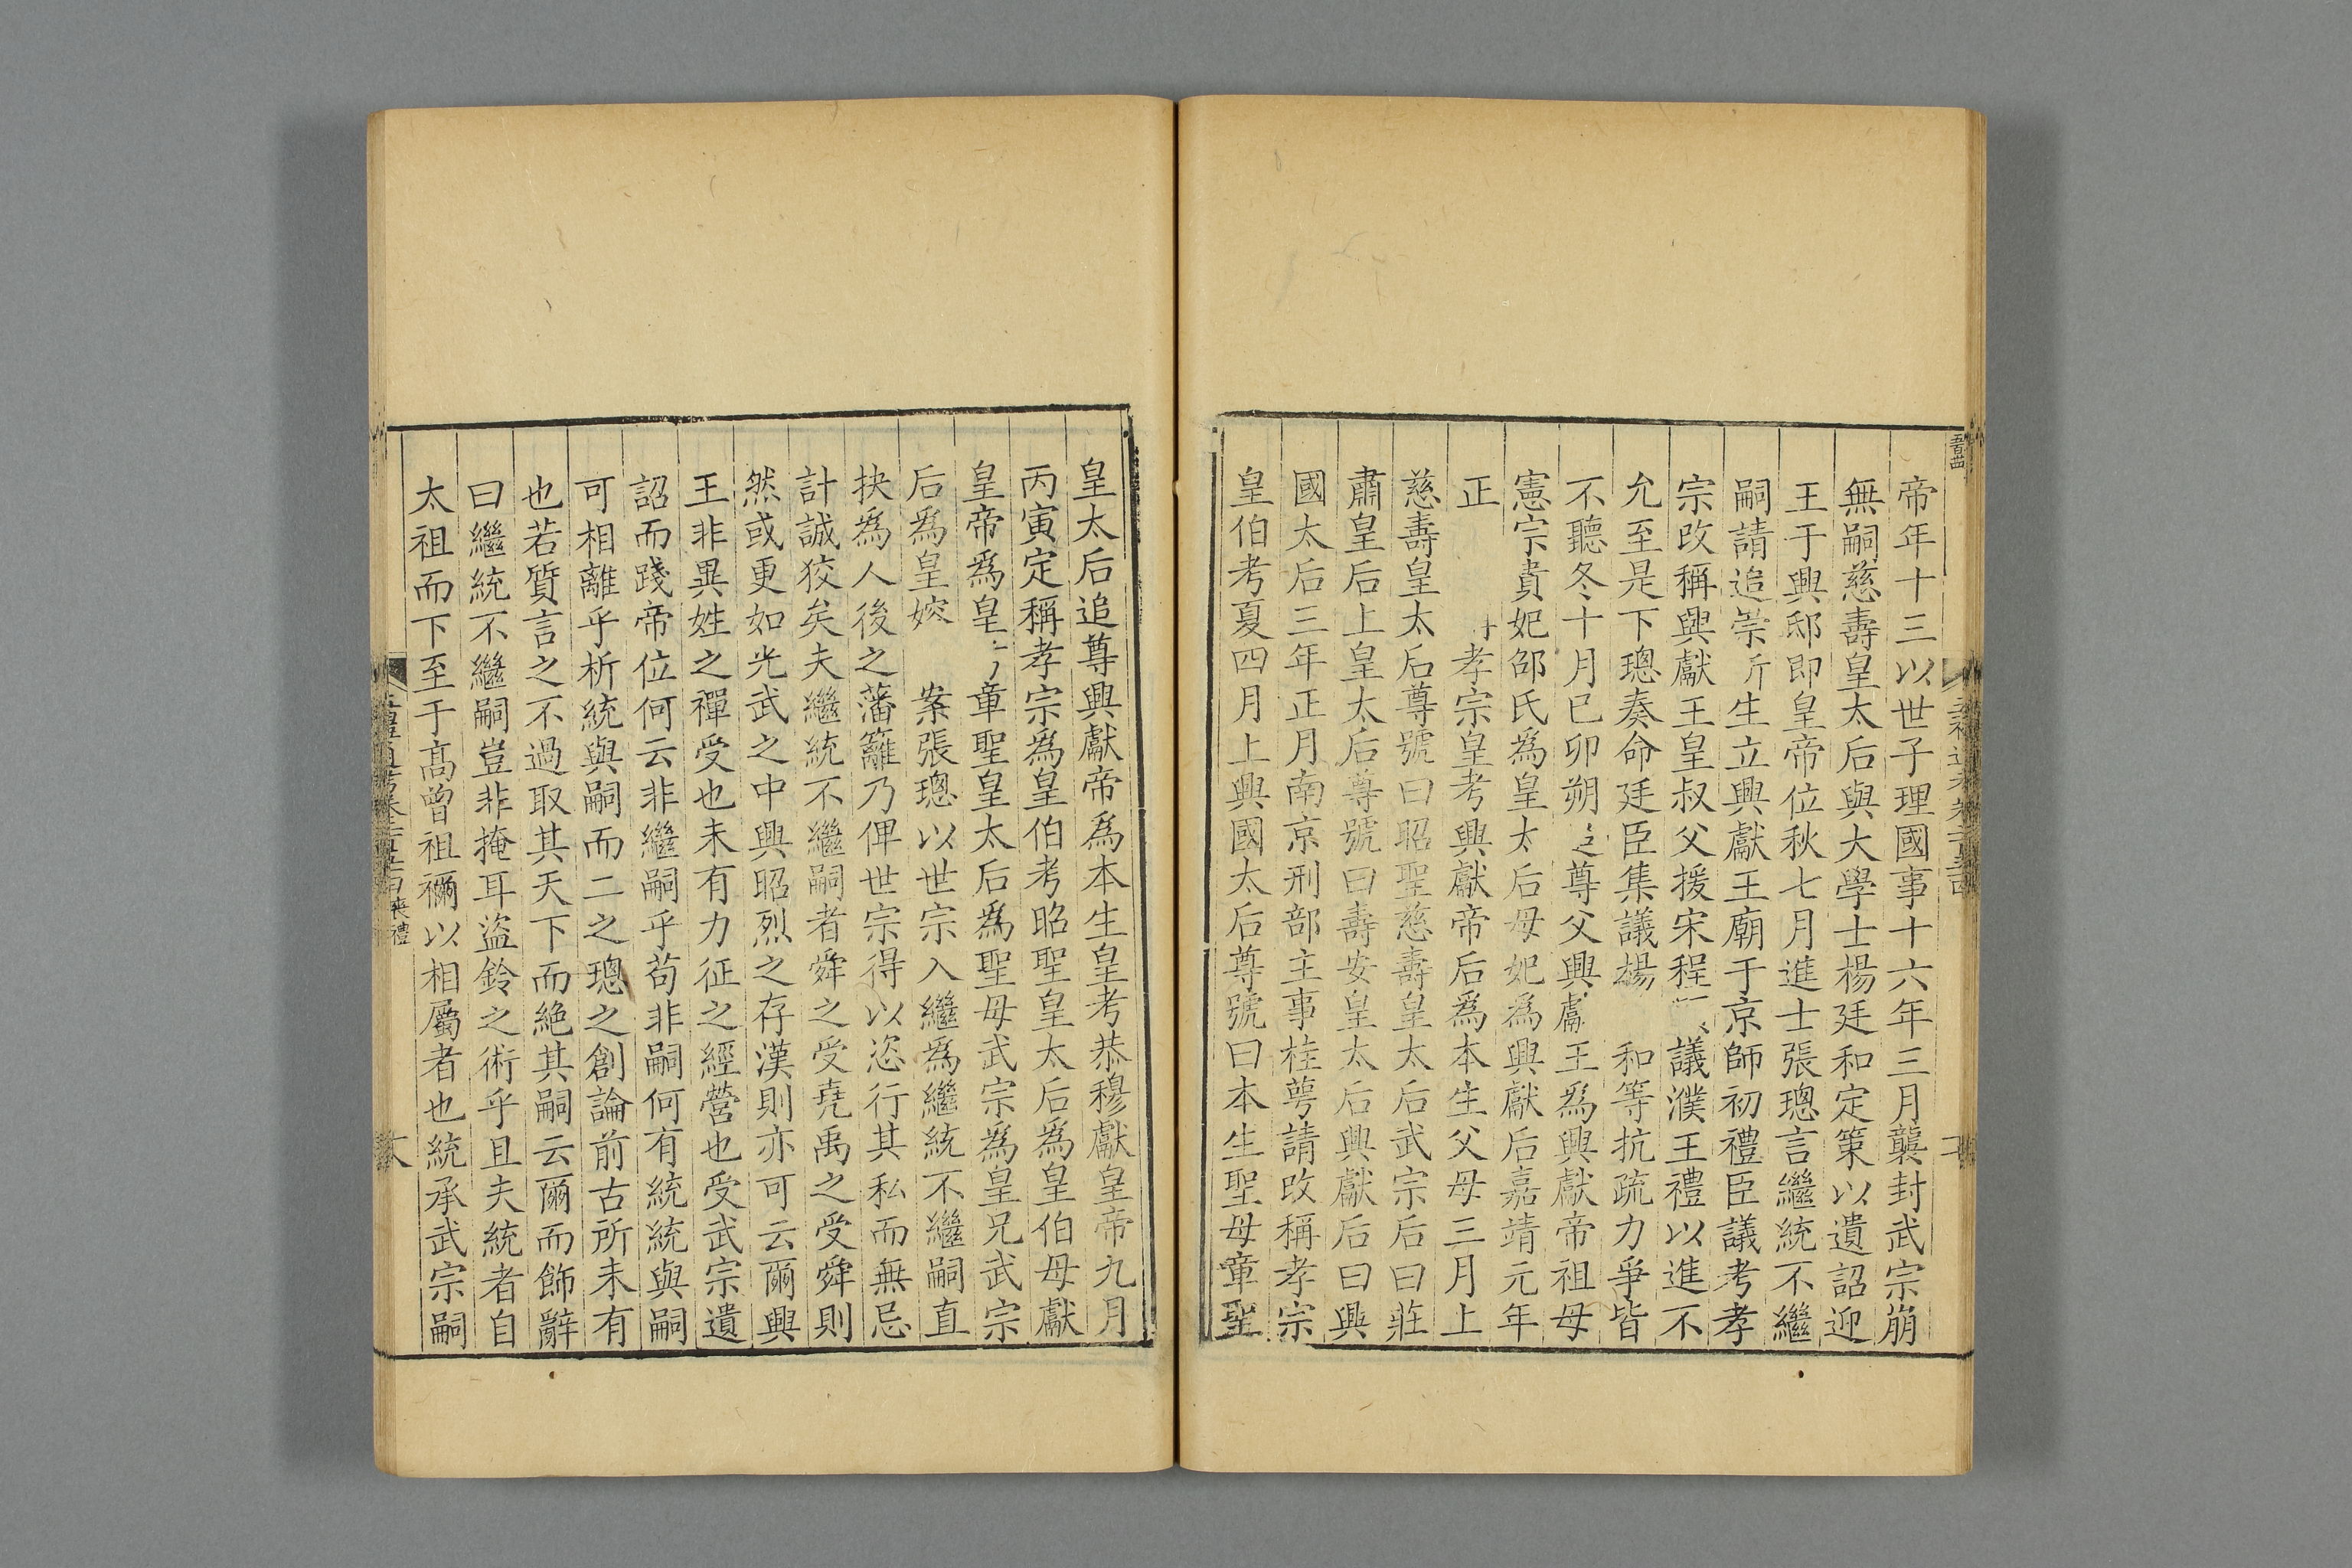 帝年十三以世子理國事十六年三月襲封武宗崩
無嗣慈壽皇太后與大學士楊廷和定策以遺詔迎
王于興邸即皇帝位秋七月進士張璁言繼統不繼
嗣請追崇所生立興獻王廟于京師初禮臣議考孝
宗改稱興獻王皇叔父援宋程議濮王禮以進不
允至是下璁奏命廷臣集議楊和等抗疏力爭皆
不聽冬十月己卯朔尊父興獻王為興獻帝祖母
憲宗貴妃邵氏為皇太后母妃為興獻后嘉靖元年
正孝宗皇考興獻帝后為本生父母三月上
慈壽皇太后尊號曰昭聖慈壽皇太后武宗后曰莊
肅皇后上皇太后尊號曰壽安皇太后興獻后曰興
國太后三年正月南京刑部主事桂萼請改稱孝宗
皇伯考夏四月上興國太后尊號曰本生聖母章聖
皇太后追尊興獻帝為本生皇考恭穆獻皇帝九月
丙寅定稱孝宗為皇伯考昭聖皇太后為皇伯母獻
皇帝為皇章聖皇太后為聖母武宗為皇兄武宗
后為皇嫂　案張璁以世宗入繼為繼統不繼嗣直
抉為人後之藩籬乃俾世宗得以恣行其私而無忌
計誠狡矣夫繼統不繼嗣者舜之受堯禹之受舜則
然或更如光武之中興昭烈之存漢則亦可云爾興
王非異姓之禪受也未有力征之經營也受武宗遺
詔而踐帝位何云非繼嗣乎苟非嗣何有統統與嗣
可相離乎析統與嗣而二之璁之創論前古所未有
也若質言之不過取其天下而絕其嗣云爾而飾辭
曰繼統不繼嗣豈非掩耳盜鈴之術乎且夫統者自
太祖而下至于高曾祖禰以相屬者也統承武宗嗣